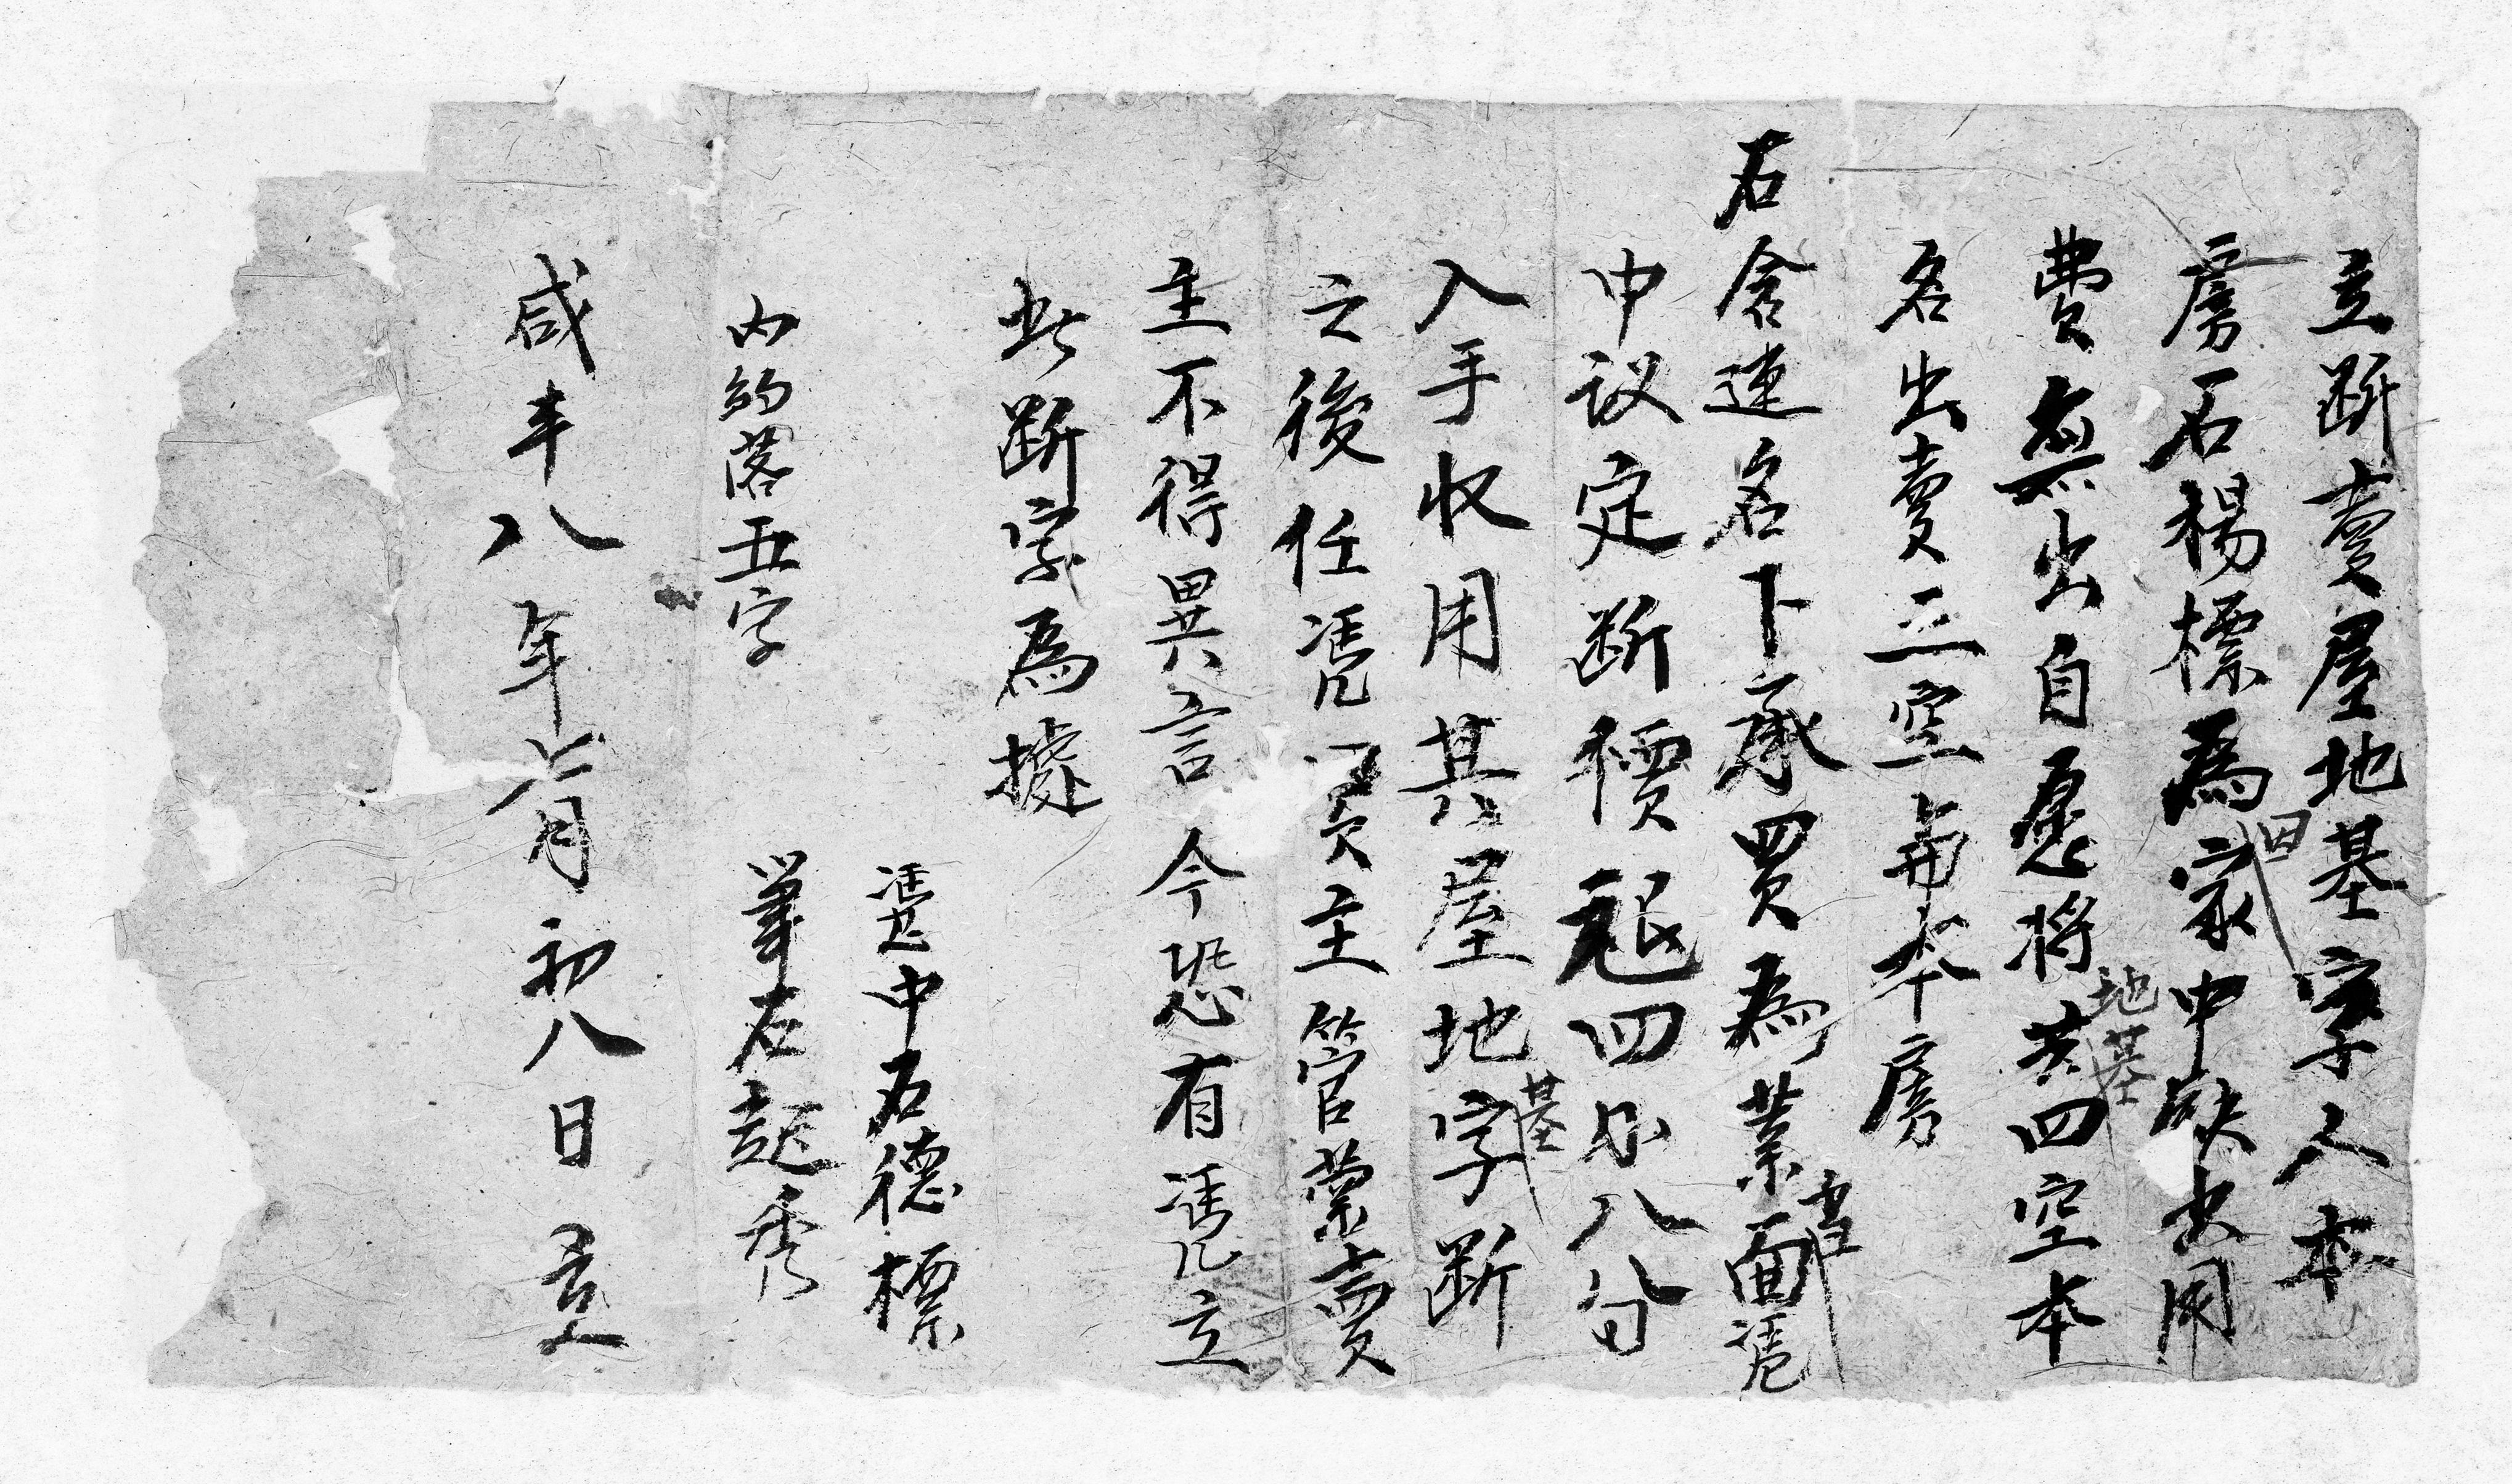 立断賣屋地基字人本
房石楊標為因家中缺少用
費無出自愿將地基共四空本
名出賣三空与本房
石含連名下承買為業當面憑
中议定断價銀四两八分
入手收用其屋地基字断
之後任憑買主管業賣
主不得異言今恐有憑立
此断字為據
憑中石德標
筆石起秀
内約落五字
咸丰八年六月初八日立